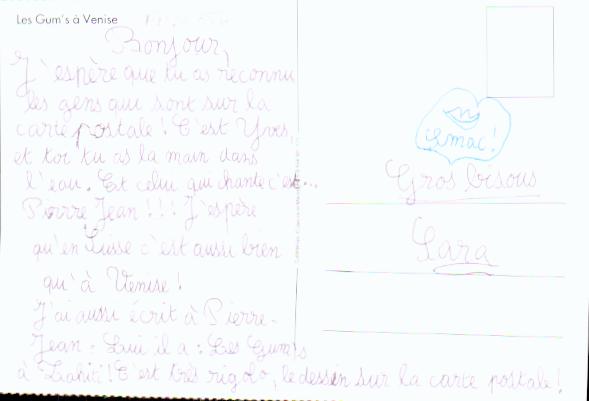 Les Gum's à Venise
Bonjour,
J'espère que tu as reconnu
les gens qui sont sur la
carte postale ! C'est Yves,
et toi tu as la main dans
l'eau. Et celui qui chante c'est...
Pierre Jean !!! J'espère
qu'en Suisse c'est aussi bien
qu'à Venise !
J'ai aussi écrit à Pierre-
Jean : Lui il a : Les Gum's
à Tahiti ! C'est très rigolo, le dessin sur la carte postale !
smac !
Gros bisous
Sara